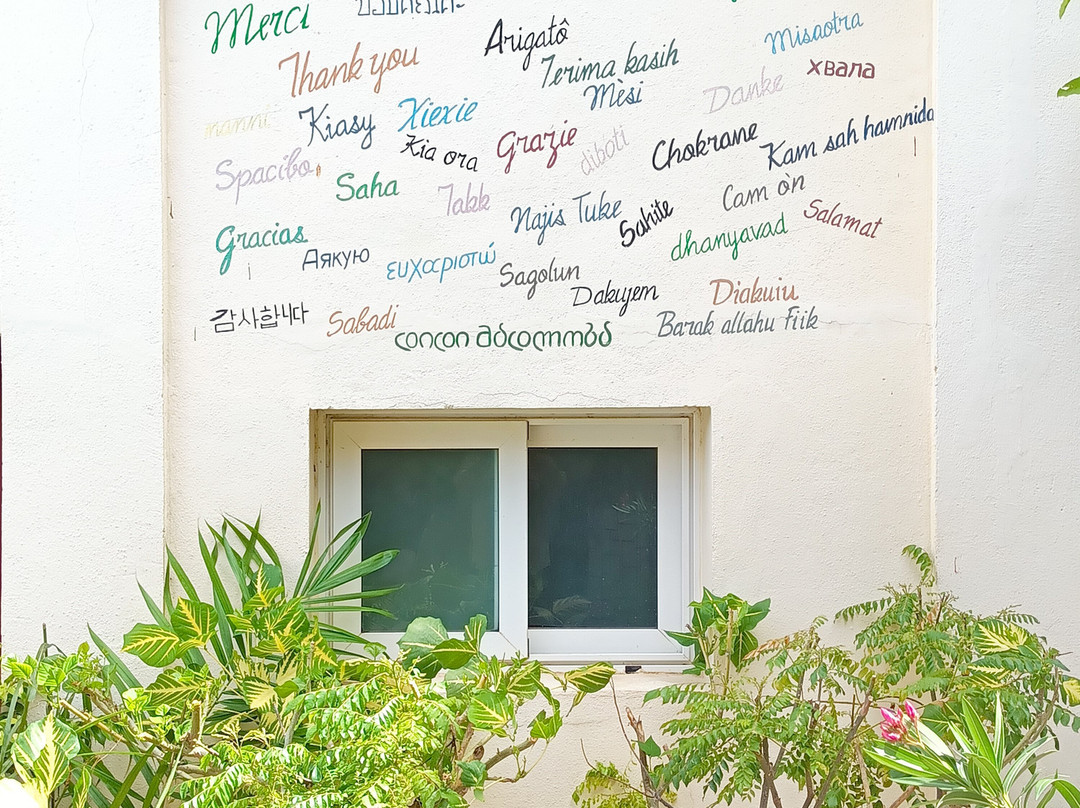 Merci
Arigatô
Misaotra
Thank you
Terima kasih
хвала
Mèsi
Danke
Kiasy
Xiexie
Kia ora
Grazie
diboti
Chokrane
Kam sah hamnida
Spacibo
Saha
Takk
Najis Tuke
Sahite
Cam òn
Salamat
Gracias
Дякую
ευχαριστώ
Sagolun
dhanyavad
Dakujem
Diakuiu
감사합니다
Sabadi
Barak allahu fiik